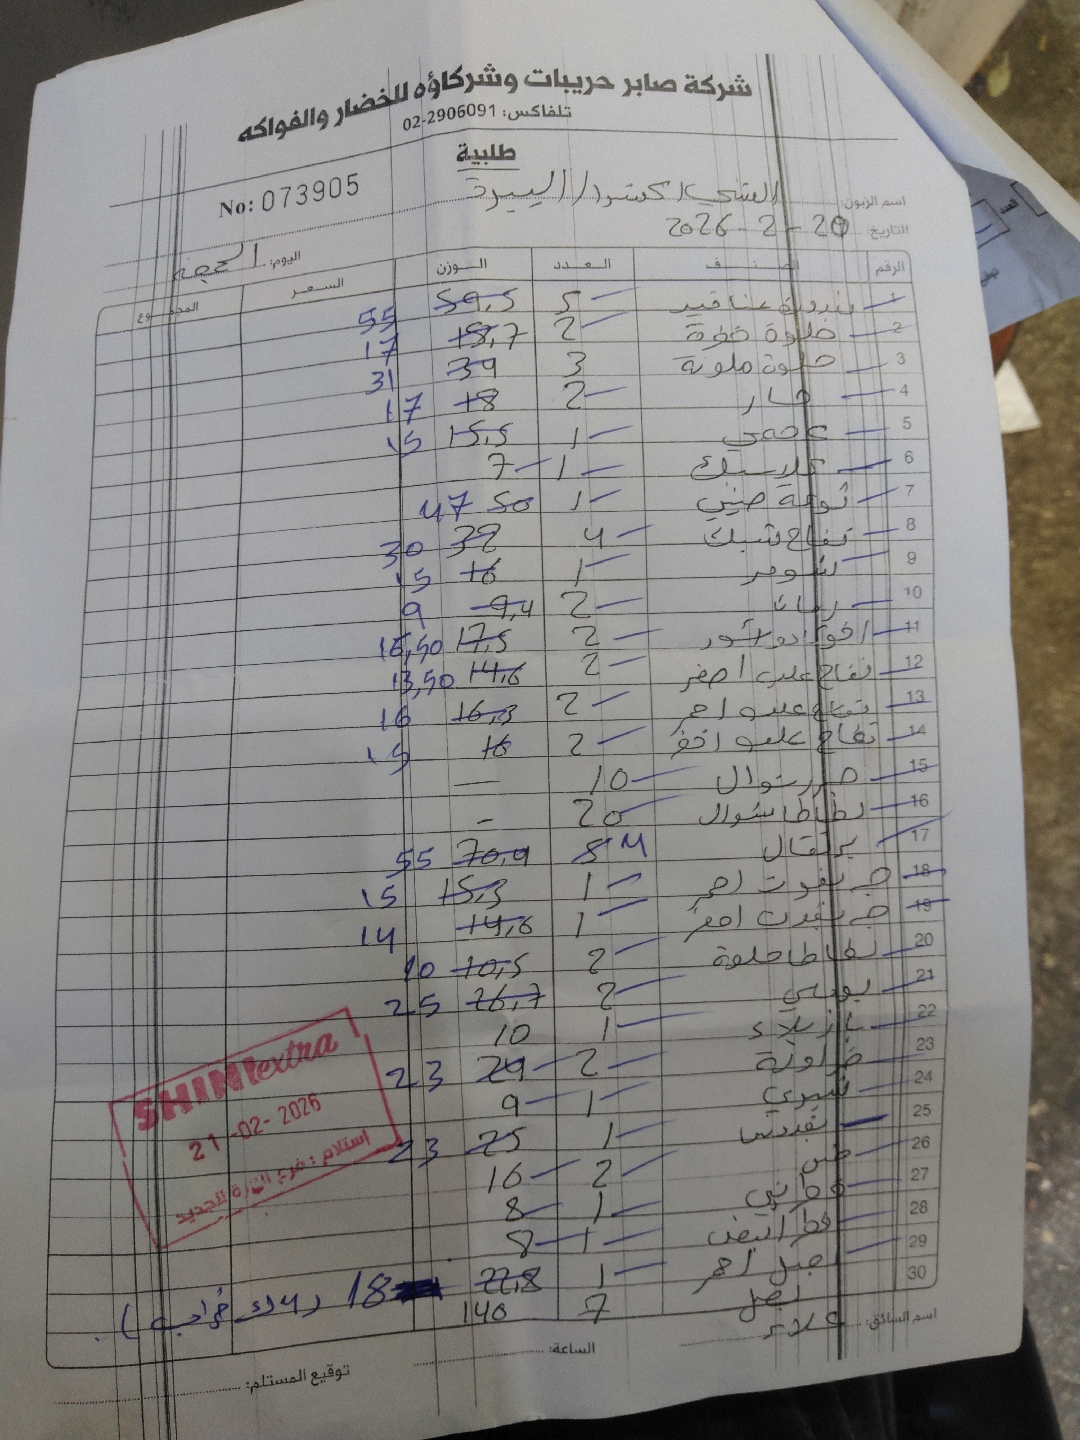 شركة صابر حريبات وشركاؤه للخضار والفواكه
تلفاكس: 02-2906091
طلبية
No: 073905
اسم الزبون: اكسترا / البيرة
التاريخ: 20-2-2026
اليوم: الجمعة
الرقم الصنف العدد الوزن السعر المجموع
1 بندورة عناقيد 5 59,5 55
2 حلوة 2 18,7 17
3 حلوة ملونة 3 34 31
4 خيار 2 18 17
5 عجمي 1 15,5 15
6 كلاسيك 1 7
7 ثومة صيني 1 50 47
8 تفاح شبك 4 32 30
9 شومر 1 16 15
10 رمان 2 9,4 9
11 افوكادو 2 17,5 16,50
12 تفاح علب اصفر 2 14,6 13,50
13 تفاح علب احمر 2 16,3 16
14 تفاح علب اخضر 2 16 15
15 جزر شوال 10 —
16 بطاطا شوال 20 -
17 برتقال 8 70,4 55
18 جريبفوت احمر 1 15,3 15
19 1 14,6 14
20 بطاطا حلوة 2 10,5 10
21 بوملي 2 26,7 25
22 بازيلاء 1 10
23 فراولة 2 24 23
24 شيري 1 9
25 بقدونس 1 25 23
26 خس 2 16
27 1 8
28 فطر ابيض 1 8
29 بصل احمر 1 22,8 18
30 بصل 7 140
SHINI extra
21-02-2026
استلام: فرع
اسم السائق: علاء
الساعة:
توقيع المستلم: